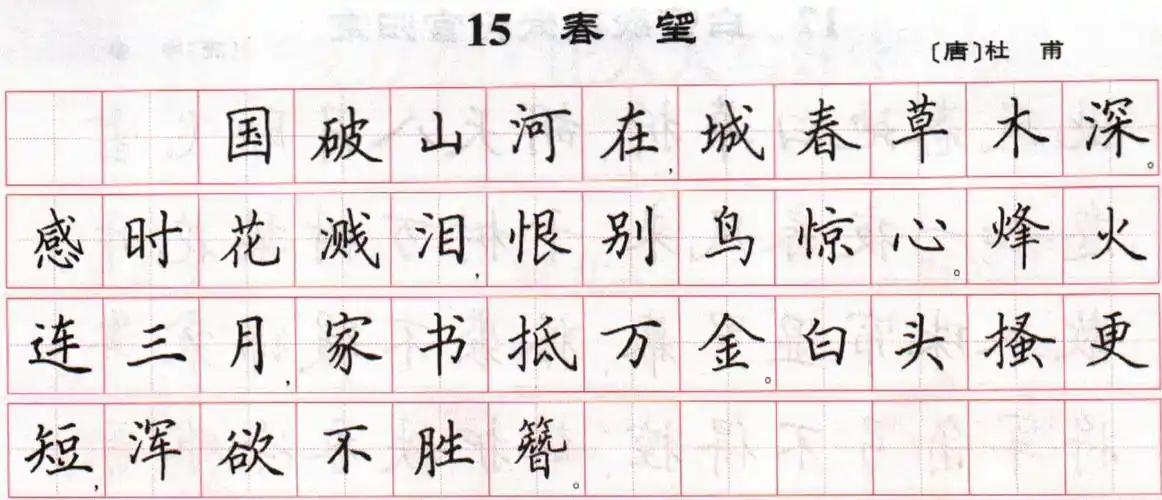 15 春 望
〔唐〕杜 甫
国破山河在,城春草木深。
感时花溅泪,恨别鸟惊心。烽火
连三月,家书抵万金。白头搔更
短,浑欲不胜簪。